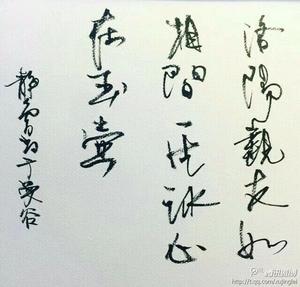 洛陽親友如
相問一片冰心
在玉壺
静蕾书于曼谷
腾讯微博
http://t.qq.com/xujinglei